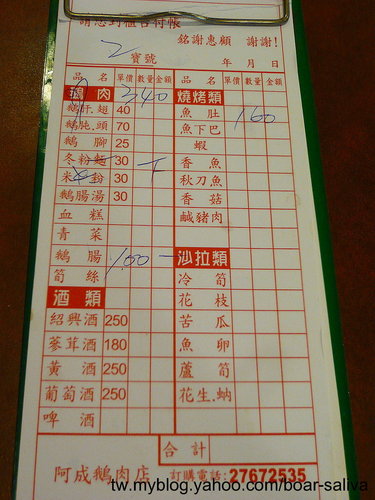 請您到櫃台付帳
銘謝惠顧 謝謝!
2 寶號 年 月 日
品名 單價 數量 金額 品名 單價 數量 金額
鵝肉 240 燒烤類
鵝肝.翅 40 魚肚 160
鵝肫.頭 70 魚下巴
鵝腳 25 蝦
冬粉麵 30 香魚
米粉 30 秋刀魚
鵝腸湯 30 香菇
血糕 鹹豬肉
青菜
鵝腸 100 沙拉類
筍絲 冷筍
酒類 花枝
紹興酒 250 苦瓜
蔘茸酒 180 魚卵
黃酒 250 蘆筍
葡萄酒 250 花生.蚋
啤酒
合計
阿成鵝肉店 訂購電話:27672535
tw.myblog.yahoo.com/boar-saliva